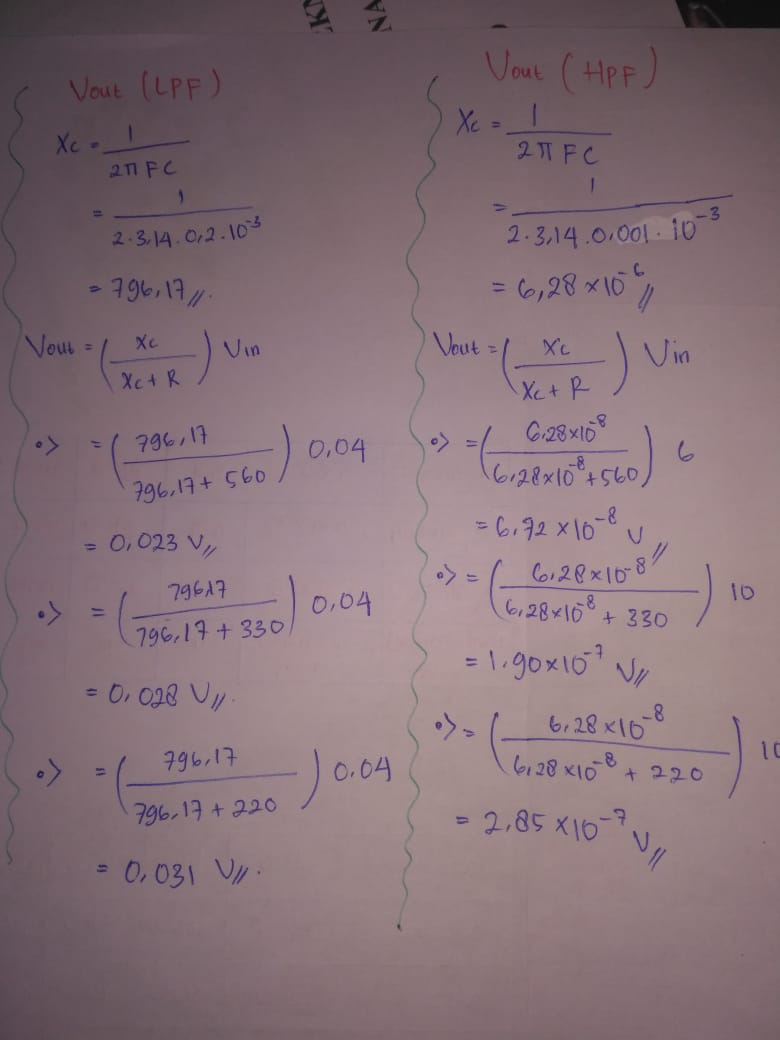 Vout (LPF)
Xc = 1 / 2π FC
= 1 / 2.3,14.0,2.10^-3
= 796,17 //.
Vout = ( Xc / Xc + R ) Vin
•> = ( 796,17 / 796,17 + 560 ) 0,04
= 0,023 V//
•> = ( 796,17 / 796,17 + 330 ) 0,04
= 0,028 V//.
•> = ( 796,17 / 796,17 + 220 ) 0,04
= 0,031 V//.
Vout (HPF)
Xc = 1 / 2π FC
= 1 / 2.3,14.0,001.10^-3
= 6,28 × 10^-6 //
Vout = ( Xc / Xc + R ) Vin
•> = ( 6,28×10^-8 / 6,28×10^-8 + 560 ) 6
= 6,72 × 10^-8 V//
•> = ( 6,28×10^-8 / 6,28×10^-8 + 330 ) 10
= 1,90×10^-7 V//
•> = ( 6,28 ×10^-8 / 6,28 ×10^-8 + 220 ) 10
= 2,85 ×10^-7 V//